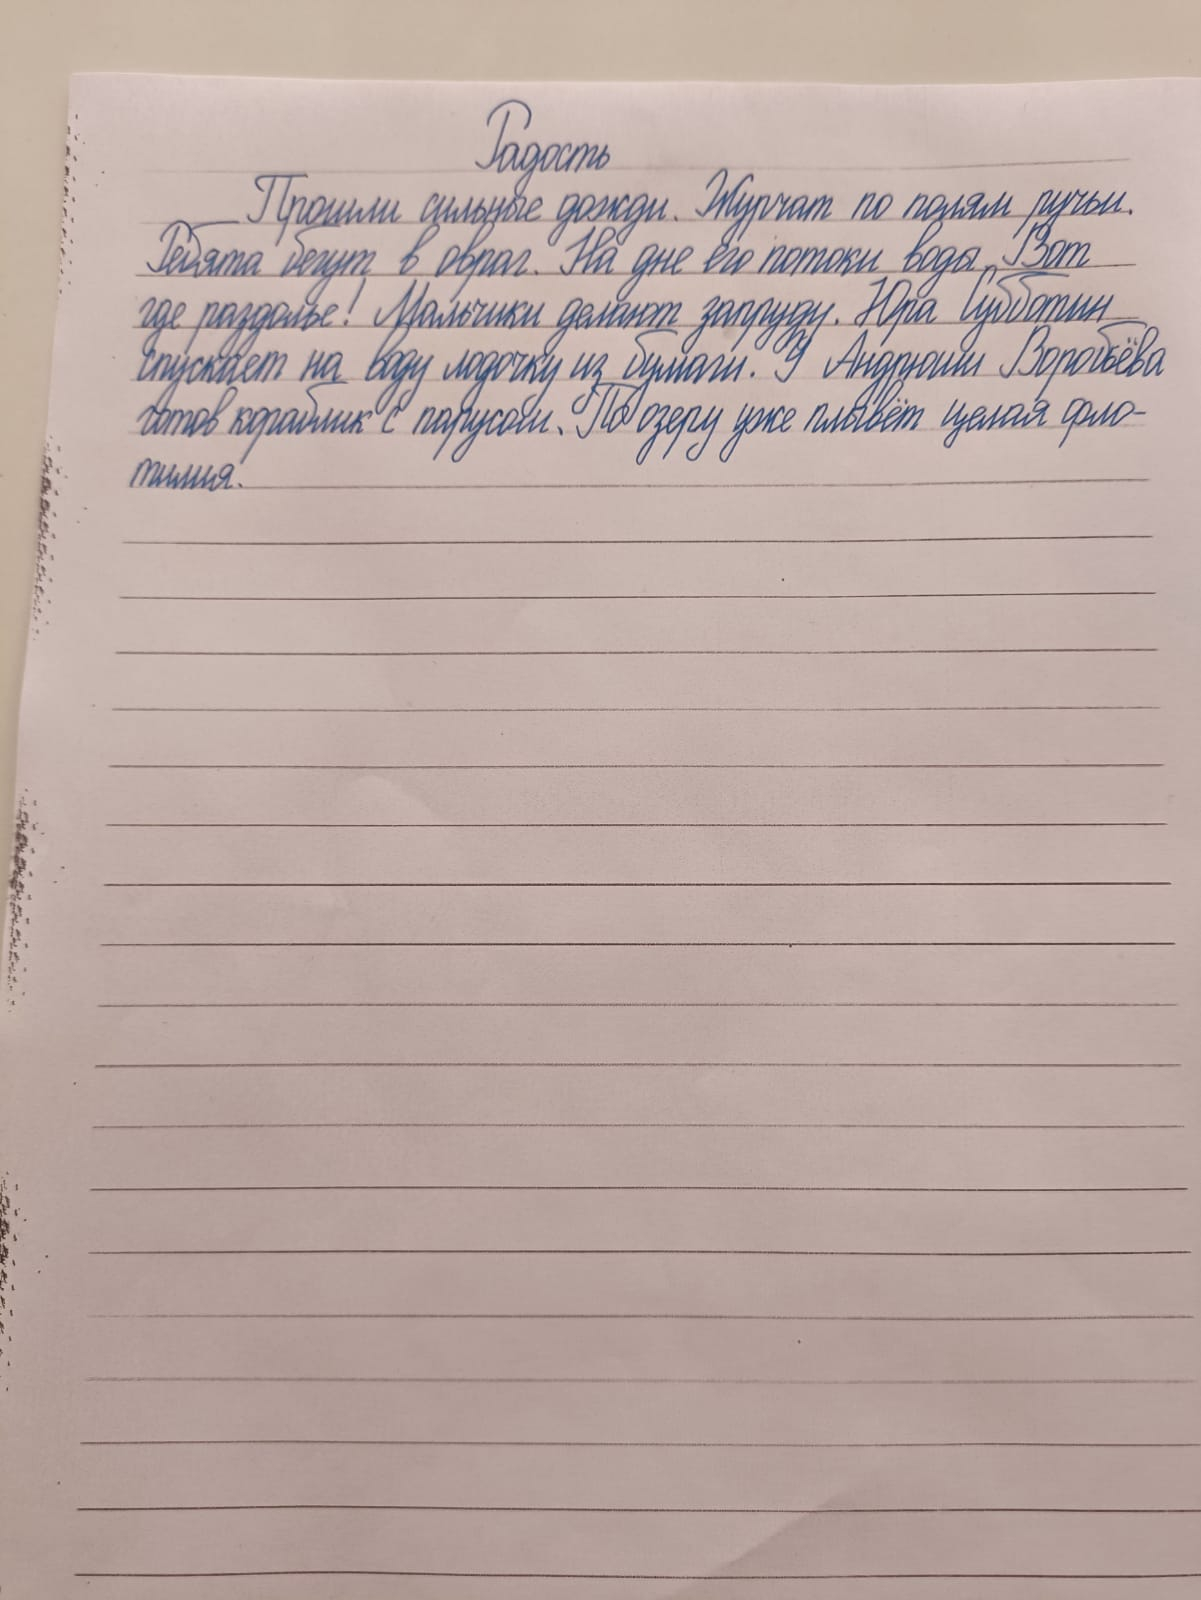 Радость
Прошли сильные дожди. Журчат по полям ручьи.
Ребята бегут в овраг. На дне его потоки воды. Вот
где раздолье! Мальчики делают запруду. Юра Субботин
спускает на воду лодочку из бумаги. У Андрюши Воробьёва
готов кораблик с парусом. По озеру уже плывёт целая фло-
тилия.